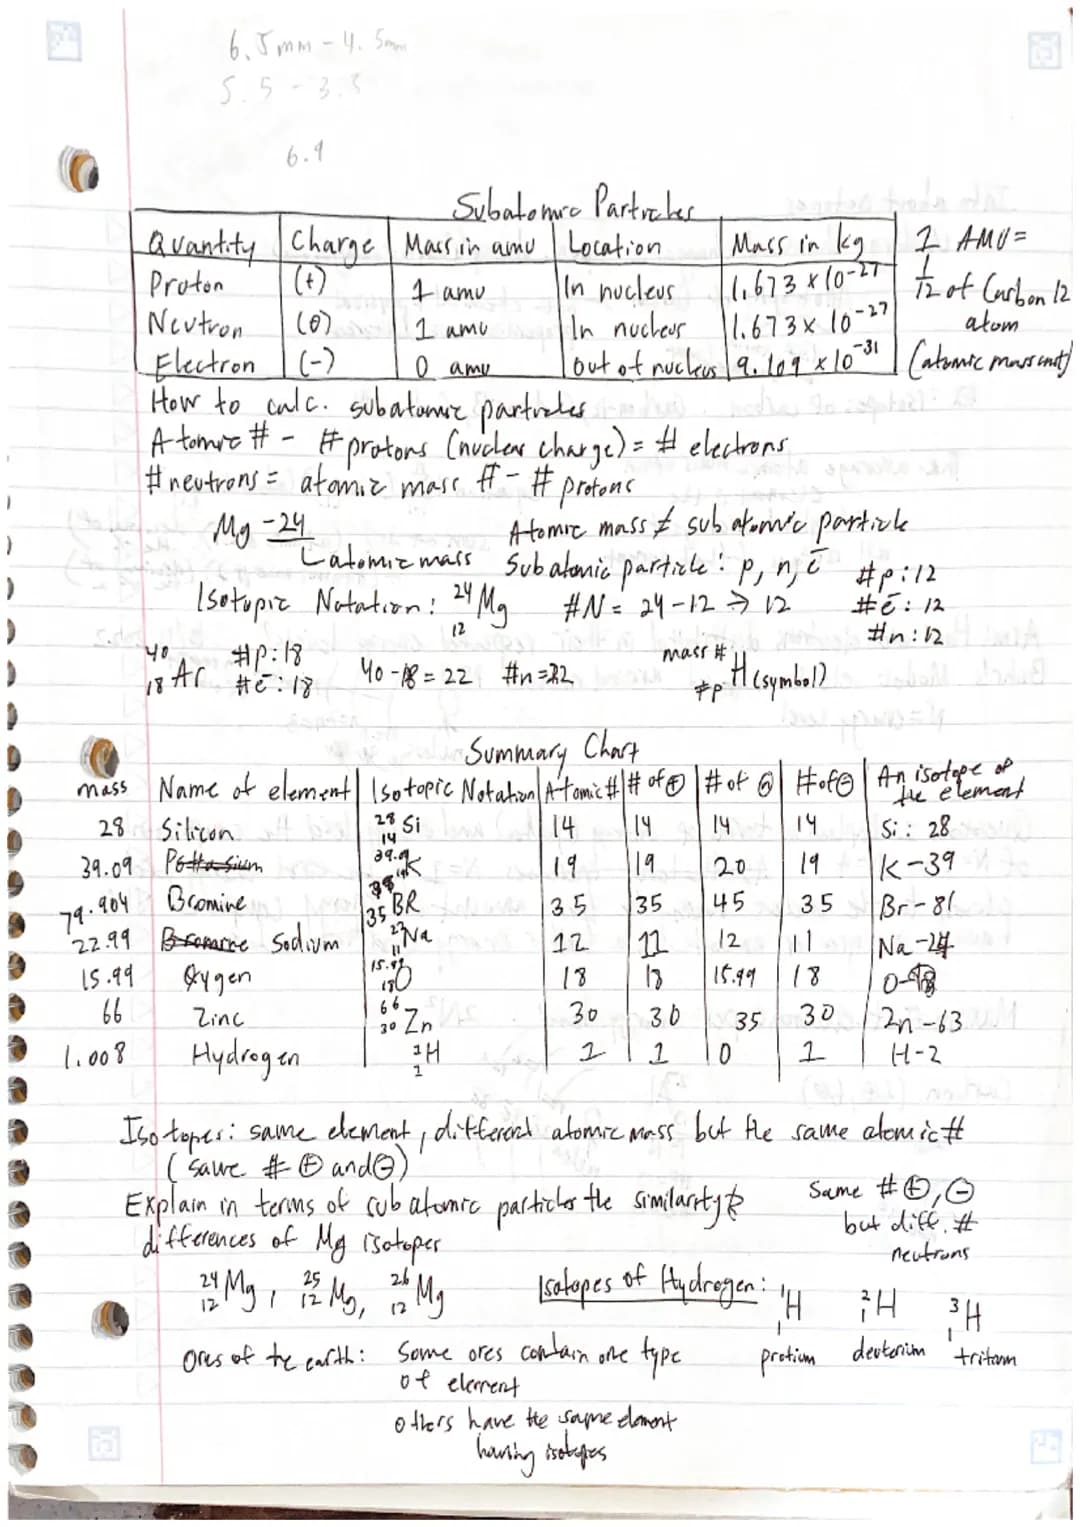 6.5mm - 4.5mm
5.5 - 3.5
6.9
Subatomic Particles
Quantity Charge Mass in amu Location Mass in kg 1 AMU =
Proton (+) 1 amu In nucleus 1.673 x 10-27 1/12 of Carbon 12
Neutron (0) 1 amu In nucleus 1.673 x 10-27 atom
Electron (-) 0 amu out of nucleus 9.109 x 10-31 (atomic mass unit)
How to calc. subatomic particles
Atomic # - # protons (nuclear charge) = # electrons
# neutrons = atomic mass # - # protons
Mg - 24 Atomic mass ≠ subatomic particle
atomic mass Subatomic particle: p, n, e- #p: 12
Isotopic Notation: 24 12 Mg #N = 24-12 → 12 #e-: 12
#n: 12
40 18 Ar #p: 18 40 - 18 = 22 #n = 22 mass # #p H (symbol)
#e-: 18
Summary Chart
mass Name of element Isotopic Notation Atomic # # of ⊕ # of (n) # of ⊖ An isotope of the element
28 Silicon 28 14 Si 14 14 14 14 Si: 28
39.09 Pottasium 39.9 19 K 19 19 20 19 K-39
79.904 Bromine 35 BR 35 35 45 35 Br-81
22.99 Bromine Sodium 23 11 Na 12 11 12 11 Na-24
15.99 Oxygen 15.99 18 O 18 18 15.99 18 O-18
66 Zinc 66 30 Zn 30 30 35 30 Zn-63
1.008 Hydrogen 1 1 H 1 1 0 1 H-2
Isotopes: same element, different atomic mass but the same atomic #
(same # ⊕ and ⊖)
Explain in terms of subatomic particles the similarity & Same # ⊕, ⊖
differences of Mg isotopes but diff. #
neutrons
24 12 Mg, 25 12 Mg, 26 12 Mg Isotopes of Hydrogen: 1 1 H 2 1 H 3 1 H
Ores of the earth: Some ores contain one type protium deuterium tritium
of element
others have the same element
having isotopes